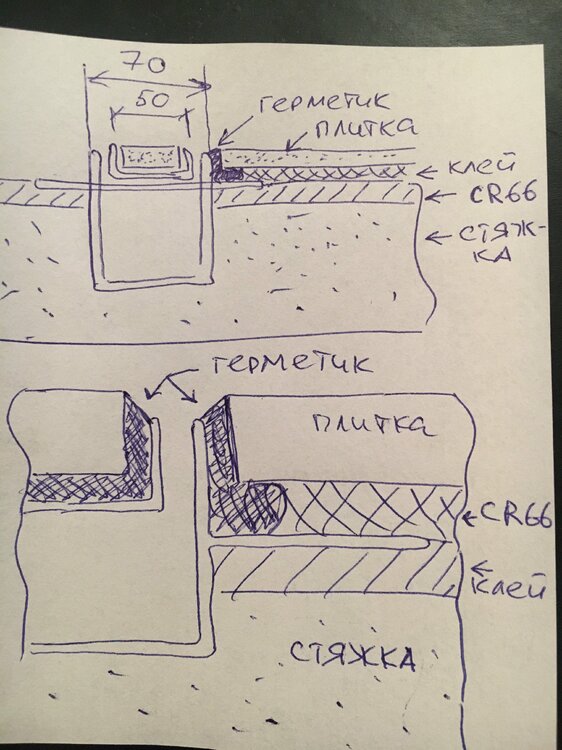 70
50
герметик
плитка
клей
CR66
стяж-
ка
герметик
плитка
CR66
клей
стяжка